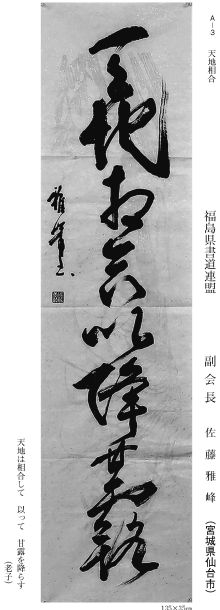 A-3 天地相合
福島県書道連盟 副会長 佐藤雅峰 (宮城県仙台市)
天地相合以降甘露
雅峰書
天地は相合して 以って 甘露を降らす
(老子)
135×35cm